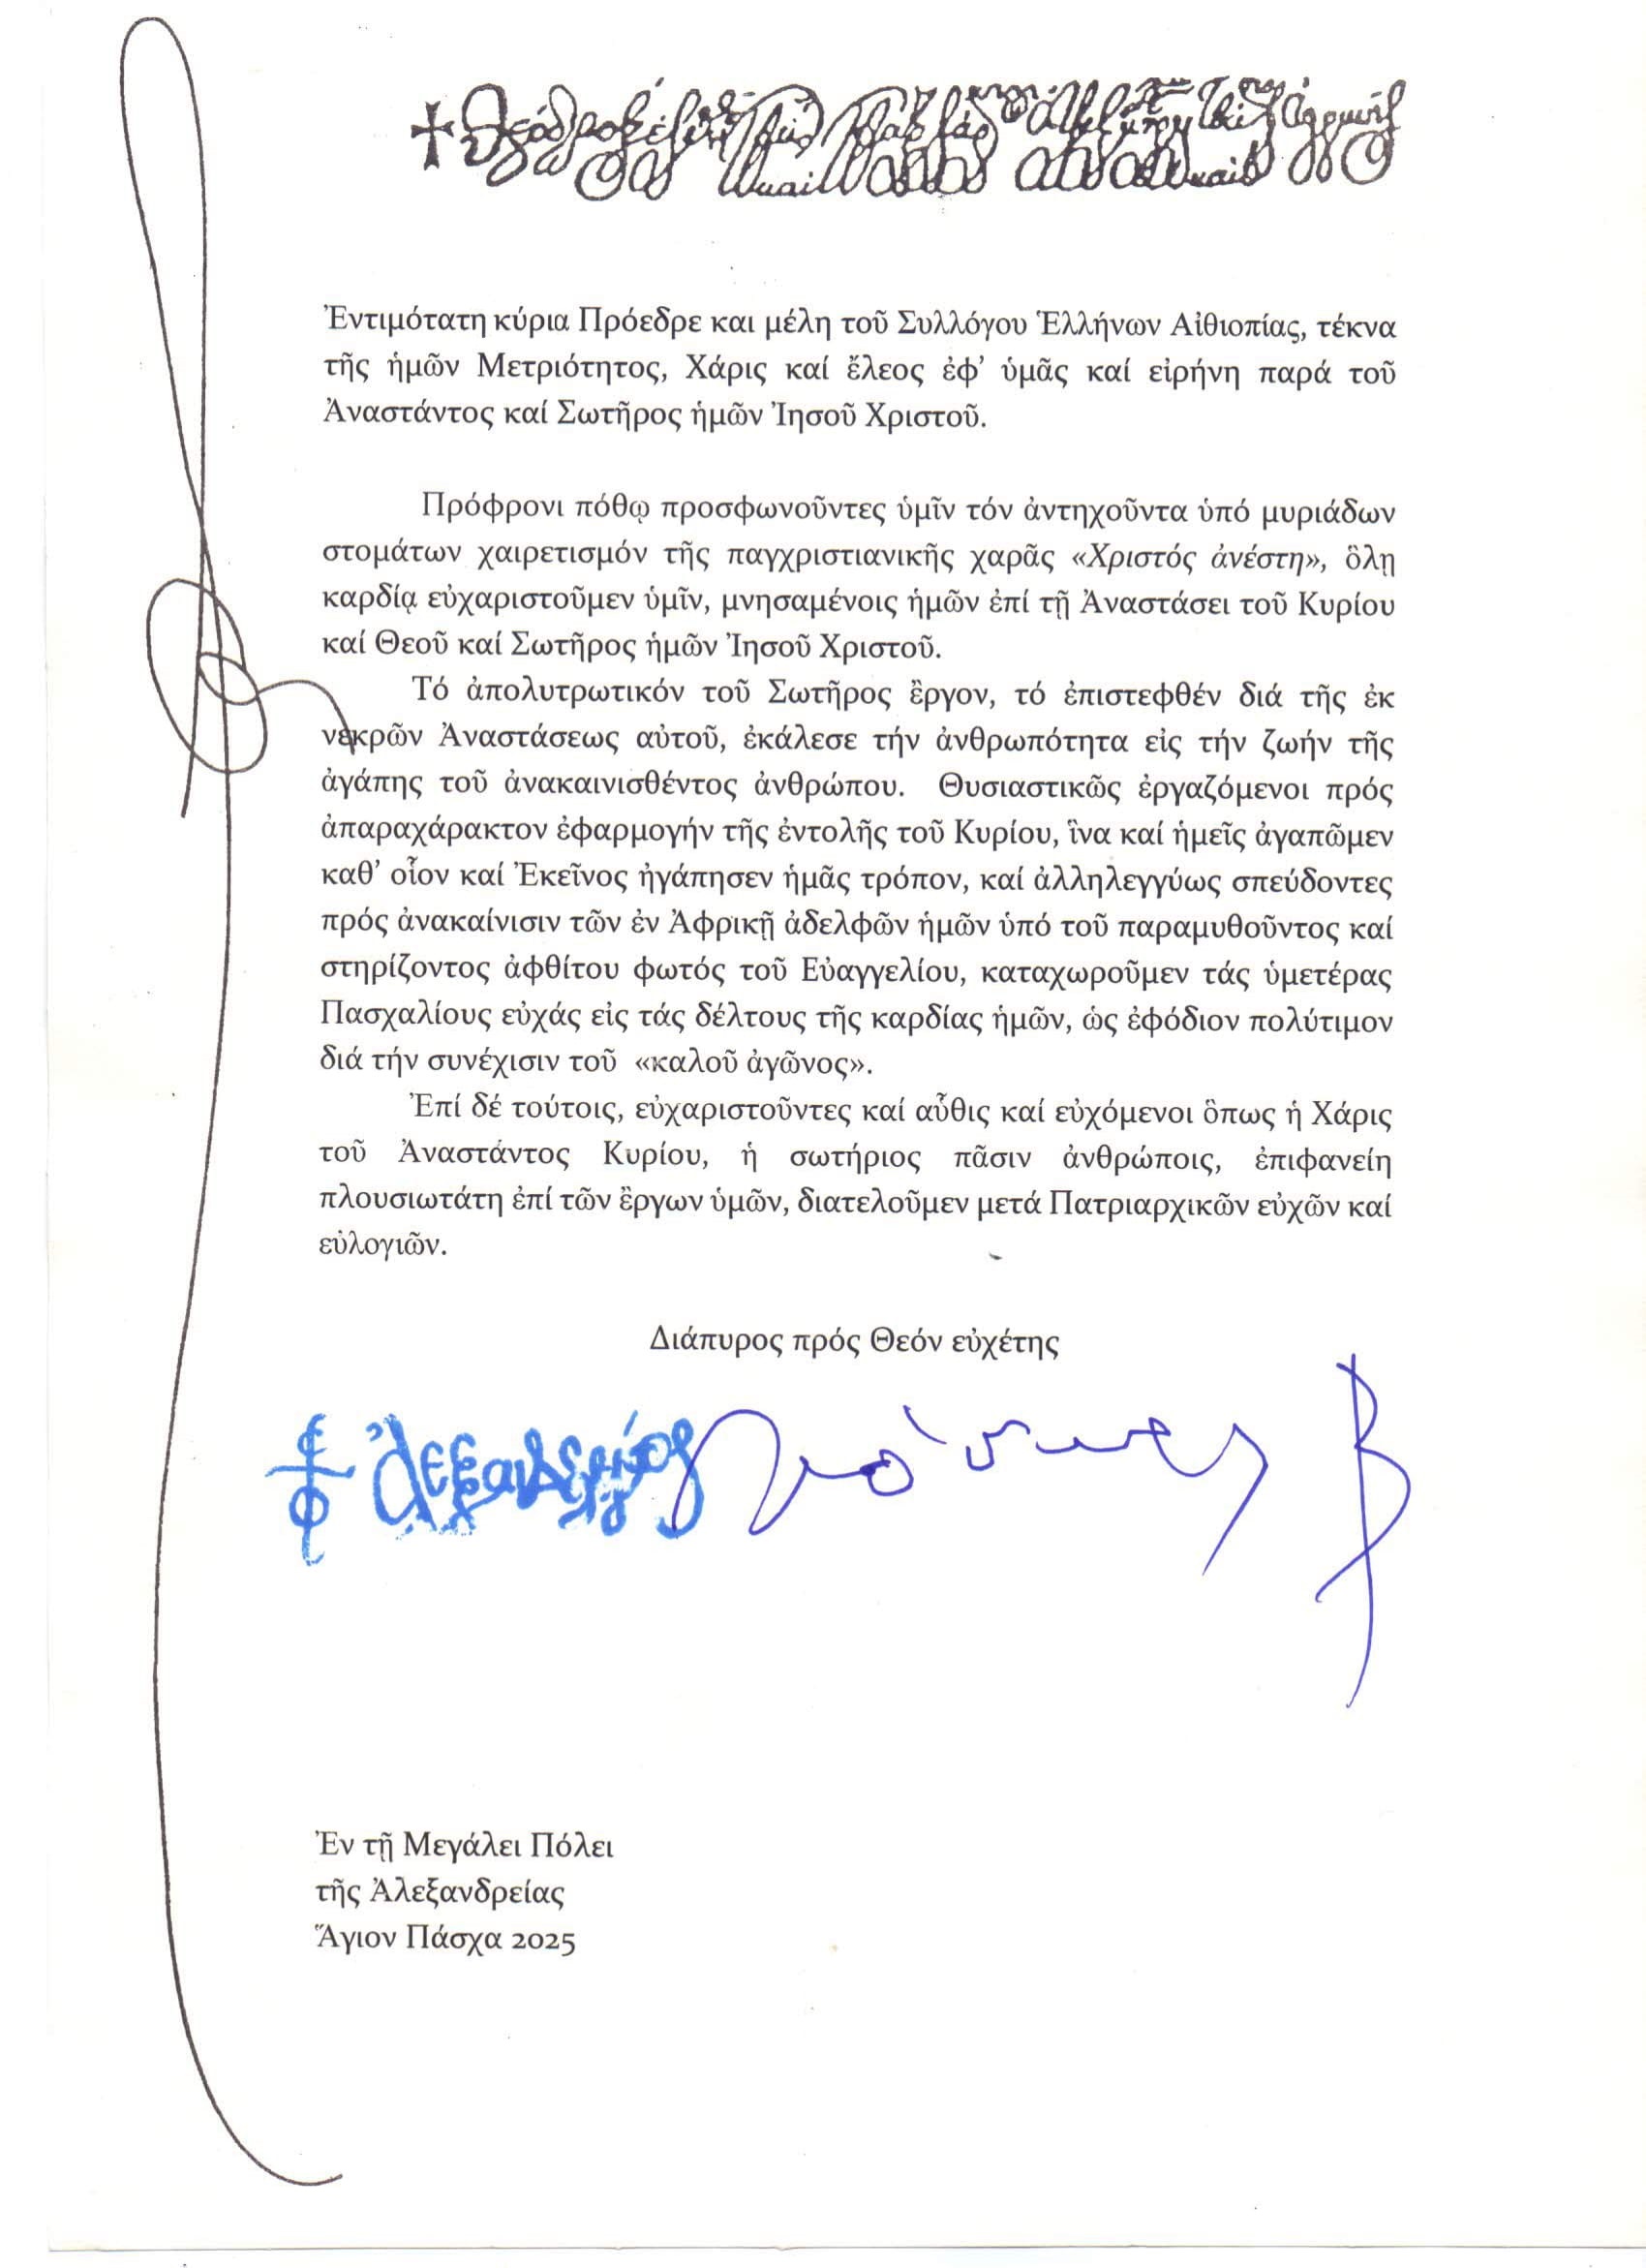 Ἐντιμότατη κύρια Πρόεδρε και μέλη τοῦ Συλλόγου Ἑλλήνων Αἰθιοπίας, τέκνα
τῆς ἡμῶν Μετριότητος, Χάρις καί ἔλεος ἐφ’ ὑμᾶς καί εἰρήνη παρά τοῦ
Ἀναστάντος καί Σωτῆρος ἡμῶν Ἰησοῦ Χριστοῦ.
Πρόφρονι πόθῳ προσφωνοῦντες ὑμῖν τόν ἀντηχοῦντα ὑπό μυριάδων
στομάτων χαιρετισμόν τῆς παγχριστιανικῆς χαρᾶς «Χριστός ἀνέστη», ὃλῃ
καρδίᾳ εὐχαριστοῦμεν ὑμῖν, μνησαμένοις ἡμῶν ἐπί τῇ Ἀναστάσει τοῦ Κυρίου
καί Θεοῦ καί Σωτῆρος ἡμῶν Ἰησοῦ Χριστοῦ.
Τό ἀπολυτρωτικόν τοῦ Σωτῆρος ἒργον, τό ἐπιστεφθέν διά τῆς ἐκ
νεκρῶν Ἀναστάσεως αὐτοῦ, ἐκάλεσε τήν ἀνθρωπότητα εἰς τήν ζωήν τῆς
ἀγάπης τοῦ ἀνακαινισθέντος ἀνθρώπου. Θυσιαστικῶς ἐργαζόμενοι πρός
ἀπαραχάρακτον ἐφαρμογήν τῆς ἐντολῆς τοῦ Κυρίου, ἳνα καί ἡμεῖς ἀγαπῶμεν
καθ’ οἷον καί Ἐκεῖνος ἠγάπησεν ἡμᾶς τρόπον, καί ἀλληλεγγύως σπεύδοντες
πρός ἀνακαίνισιν τῶν ἐν Ἀφρικῇ ἀδελφῶν ἡμῶν ὑπό τοῦ παραμυθοῦντος καί
στηρίζοντος ἀφθίτου φωτός τοῦ Εὐαγγελίου, καταχωροῦμεν τάς ὑμετέρας
Πασχαλίους εὐχάς εἰς τάς δέλτους τῆς καρδίας ἡμῶν, ὡς ἐφόδιον πολύτιμον
διά τήν συνέχισιν τοῦ «καλοῦ ἀγῶνος».
Ἐπί δέ τούτοις, εὐχαριστοῦντες καί αὖθις καί εὐχόμενοι ὃπως ἡ Χάρις
τοῦ Ἀναστάντος Κυρίου, ἡ σωτήριος πᾶσιν ἀνθρώποις, ἐπιφανείη
πλουσιωτάτη ἐπί τῶν ἒργων ὑμῶν, διατελοῦμεν μετά Πατριαρχικῶν εὐχῶν καί
εὐλογιῶν.
Διάπυρος πρός Θεόν εὐχέτης
Ἐν τῇ Μεγάλει Πόλει
τῆς Ἀλεξανδρείας
Ἅγιον Πάσχα 2025